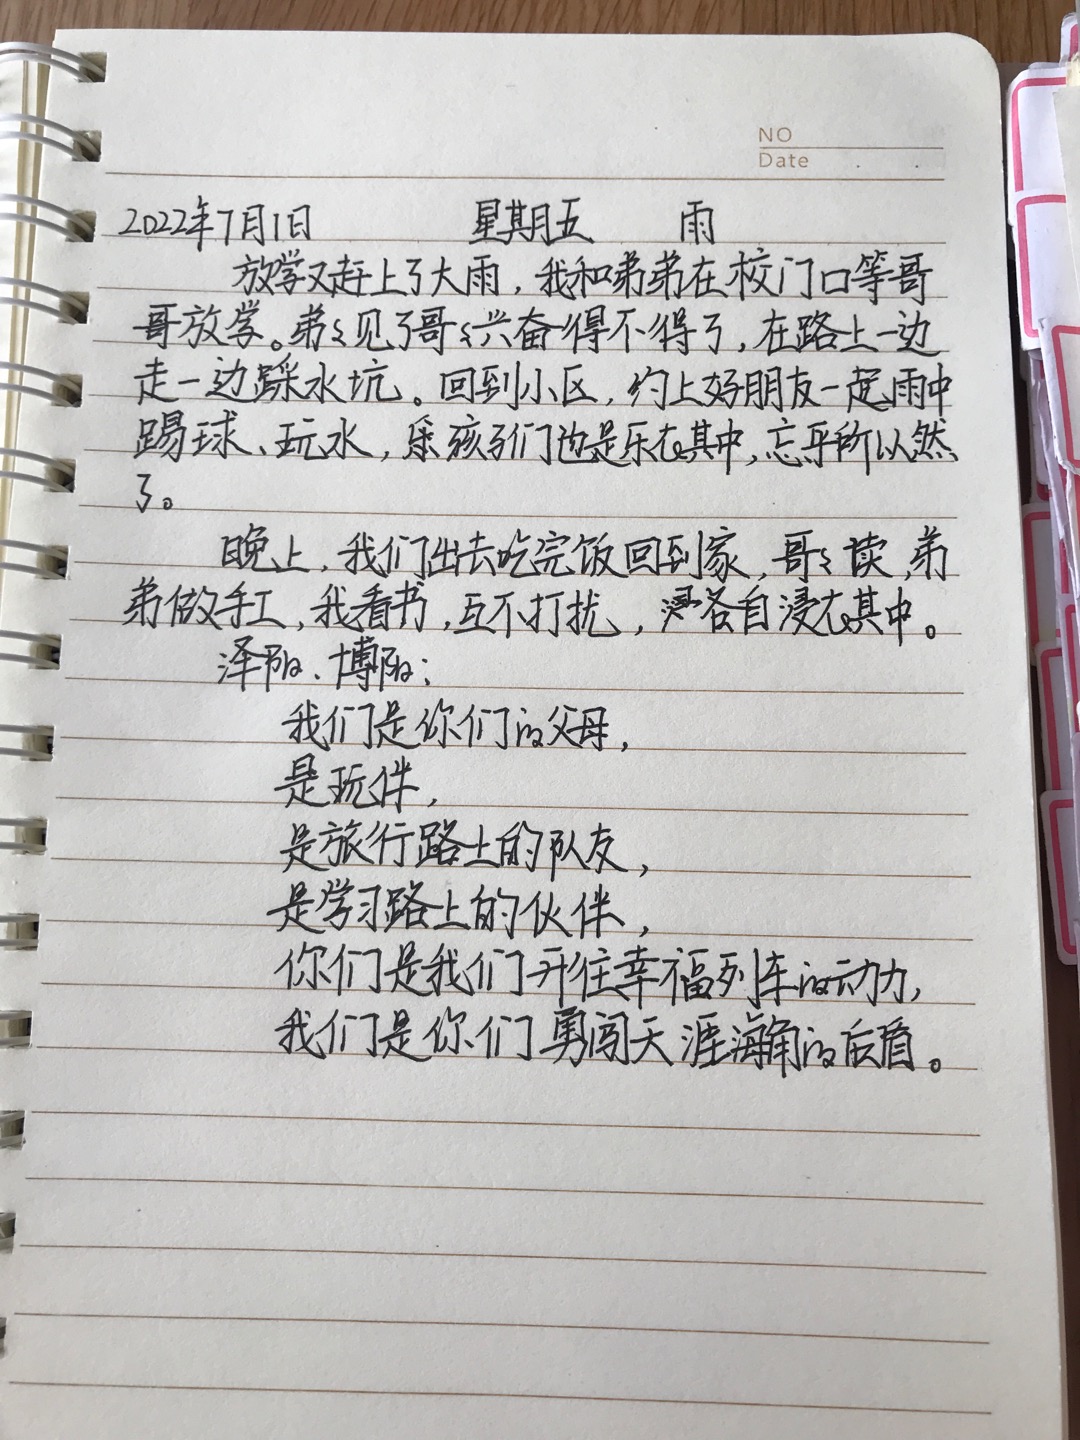 NO
Date
2022年7月1日 星期五 雨
放学又赶上了大雨，我和弟弟在校门口等哥
哥放学。弟弟见了哥哥兴奋得不得了，在路上一边
走一边踩水坑。回到小区，约上好朋友一起雨中
踢球、玩水，孩子们也是乐在其中，忘乎所以然
了。
晚上，我们出去吃完饭回到家，哥哥读，弟
弟做手工，我看书，互不打扰，各自浸在其中。
泽阳、博阳：
我们是你们的父母，
是玩伴，
是旅行路上的队友，
是学习路上的伙伴，
你们是我们开往幸福列车的动力，
我们是你们勇闯天涯海角的后盾。